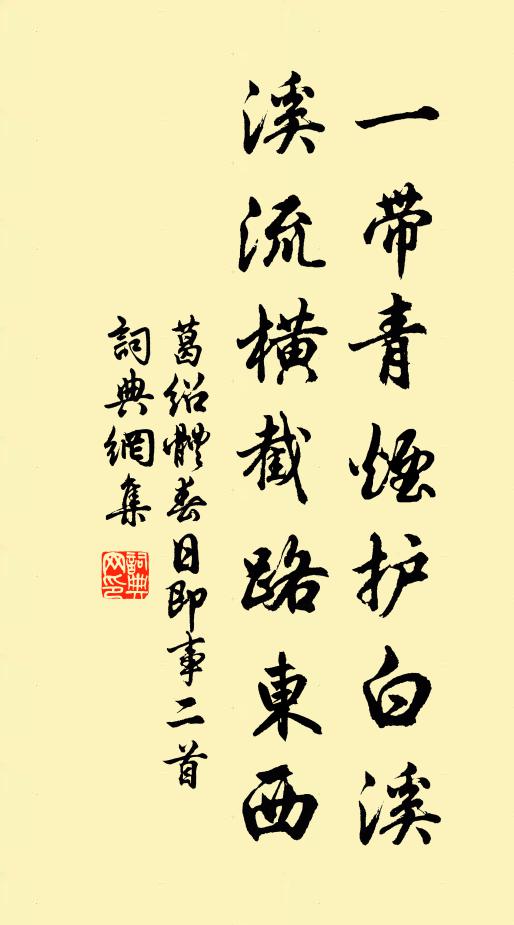 一带青煙护白溪
溪流橫截路東西
葛绍體春日即事二首
詞典網集
詞典网印